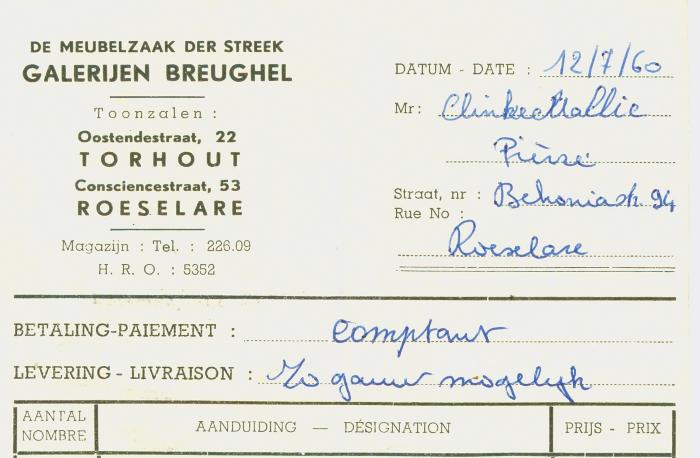 DE MEUBELZAAK DER STREEK
GALERIJEN BREUGHEL
Toonzalen :
Oostendestraat, 22
TORHOUT
Consciencestraat, 53
ROESELARE
Magazijn : Tel. : 226.09
H. R. O. : 5352
DATUM - DATE : 12/7/60
Mr :
Pièrre
Straat, nr : 94
Rue No :
Roeselare
BETALING-PAIEMENT : comptant
LEVERING - LIVRAISON : Zo gauw mogelijk
AANTAL
NOMBRE
AANDUIDING — DÉSIGNATION
PRIJS - PRIX